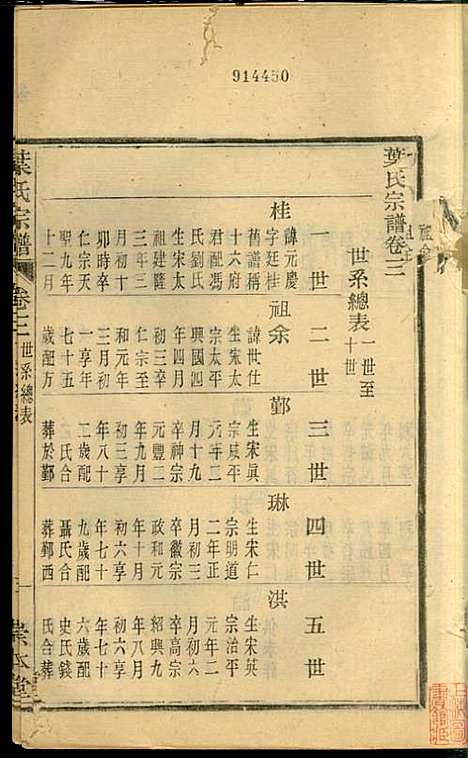 914450
葉氏宗譜卷三
世系總表 一世至十世
一世 二世 三世 四世 五世
桂
諱元慶
字廷桂
舊譜稱
十六府
君配馮
氏劉氏
生宋太
祖建隆
三年三
月初十
卯時卒
仁宗天
聖九年
十二月
祖余
諱世仕
生宋太
宗太平
興國四
年四月
初三卒
仁宗至
和元年
三月初
一享年
七十五
歲配方
鄞
生宋真
宗咸平
元年二
月十九
卒神宗
元豐二
年九月
初三享
年八十
二歲配
氏合
葬於鄞
琳
生宋仁
宗明道
二年正
月初三
卒徽宗
政和元
年十月
初六享
年七十
九歲配
聶氏合
葬鄞西
洪
生宋英
宗治平
元年二
月初六
卒高宗
紹興九
年八月
初六享
年七十
六歲配
史氏錢
氏合葬
葉氏宗譜 卷三 世系總表 一 崇本堂